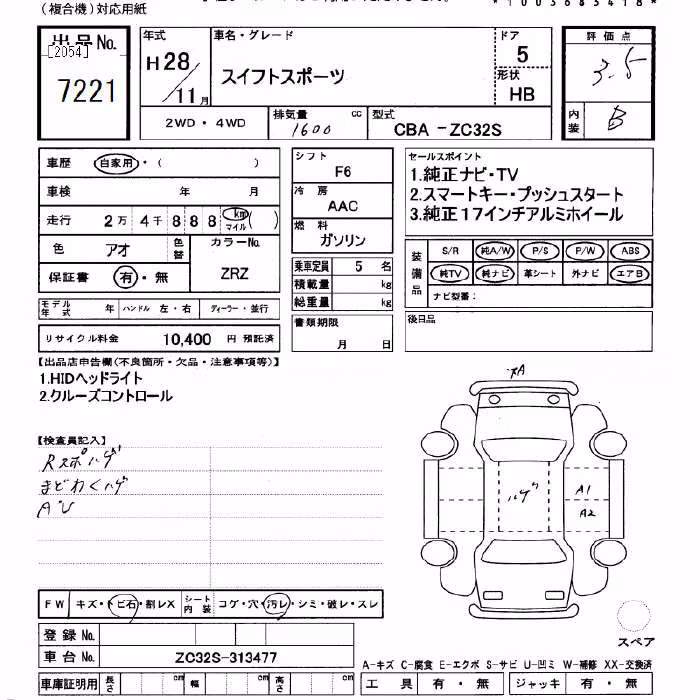 (複合機)対応用紙
出品No.
[2054]
7221
年式
H28/11月
車名・グレード
スイフトスポーツ
ドア
5
形状
HB
評価点
3.5
内装
B
2WD・4WD
排気量 cc
1600
型式
CBA-ZC32S
車歴 自家用・( )
車検 年 月
走行 2万4千888 km マイル ( )
色 アオ 色替
カラーNo.
ZRZ
保証書 有・無
モデル年式 年 ハンドル 左・右 ディーラー・並行
リサイクル料金 10,400 円 預託済
シフト
F6
冷房
AAC
燃料
ガソリン
乗車定員 5 名
積載量 kg
総重量 kg
書類期限
月 日
セールスポイント
1.純正ナビ・TV
2.スマートキー・プッシュスタート
3.純正17インチアルミホイール
装備品
S/R 純A/W P/S P/W ABS
純TV 純ナビ 革シート 外ナビ エアB
ナビ型番:
後日品
【出品店申告欄(不良箇所・欠品・注意事項等)】
1.HIDヘッドライト
2.クルーズコントロール
【検査員記入】
Rスポハゲ
まどわくハゲ
AU
ハゲ
A1
A2
スペア
FW キズ・トビ石・割レX シート内装 コゲ・穴・汚レ・シミ・破レ・スレ
登録No.
車台No. ZC32S-313477
車庫証明用 長さ cm 幅 cm 高さ cm
A-キズ C-腐食 E-エクボ S-サビ U-凹ミ W-補修 XX-交換済
工具 有・無 ジャッキ 有・無